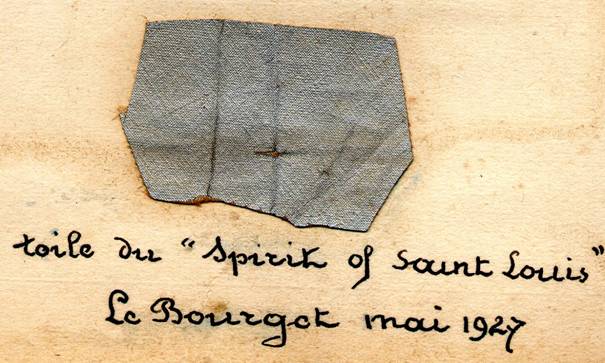 toile du "Spirit of Saint Louis"
Le Bourget mai 1927